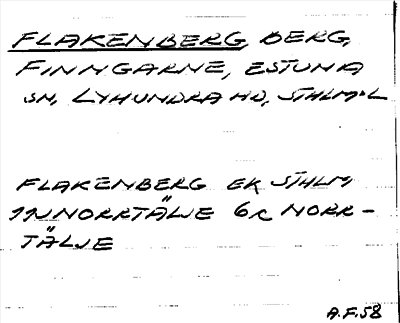 FLAKENBERG, BERG,
FINNGARNE, ESTUNA
SN, LYHUNDRA HD, STHLM:L
FLAKENBERG EK STHLM
11NNORRTÄLJE 6c NORR-
TÄLJE
A.F.58